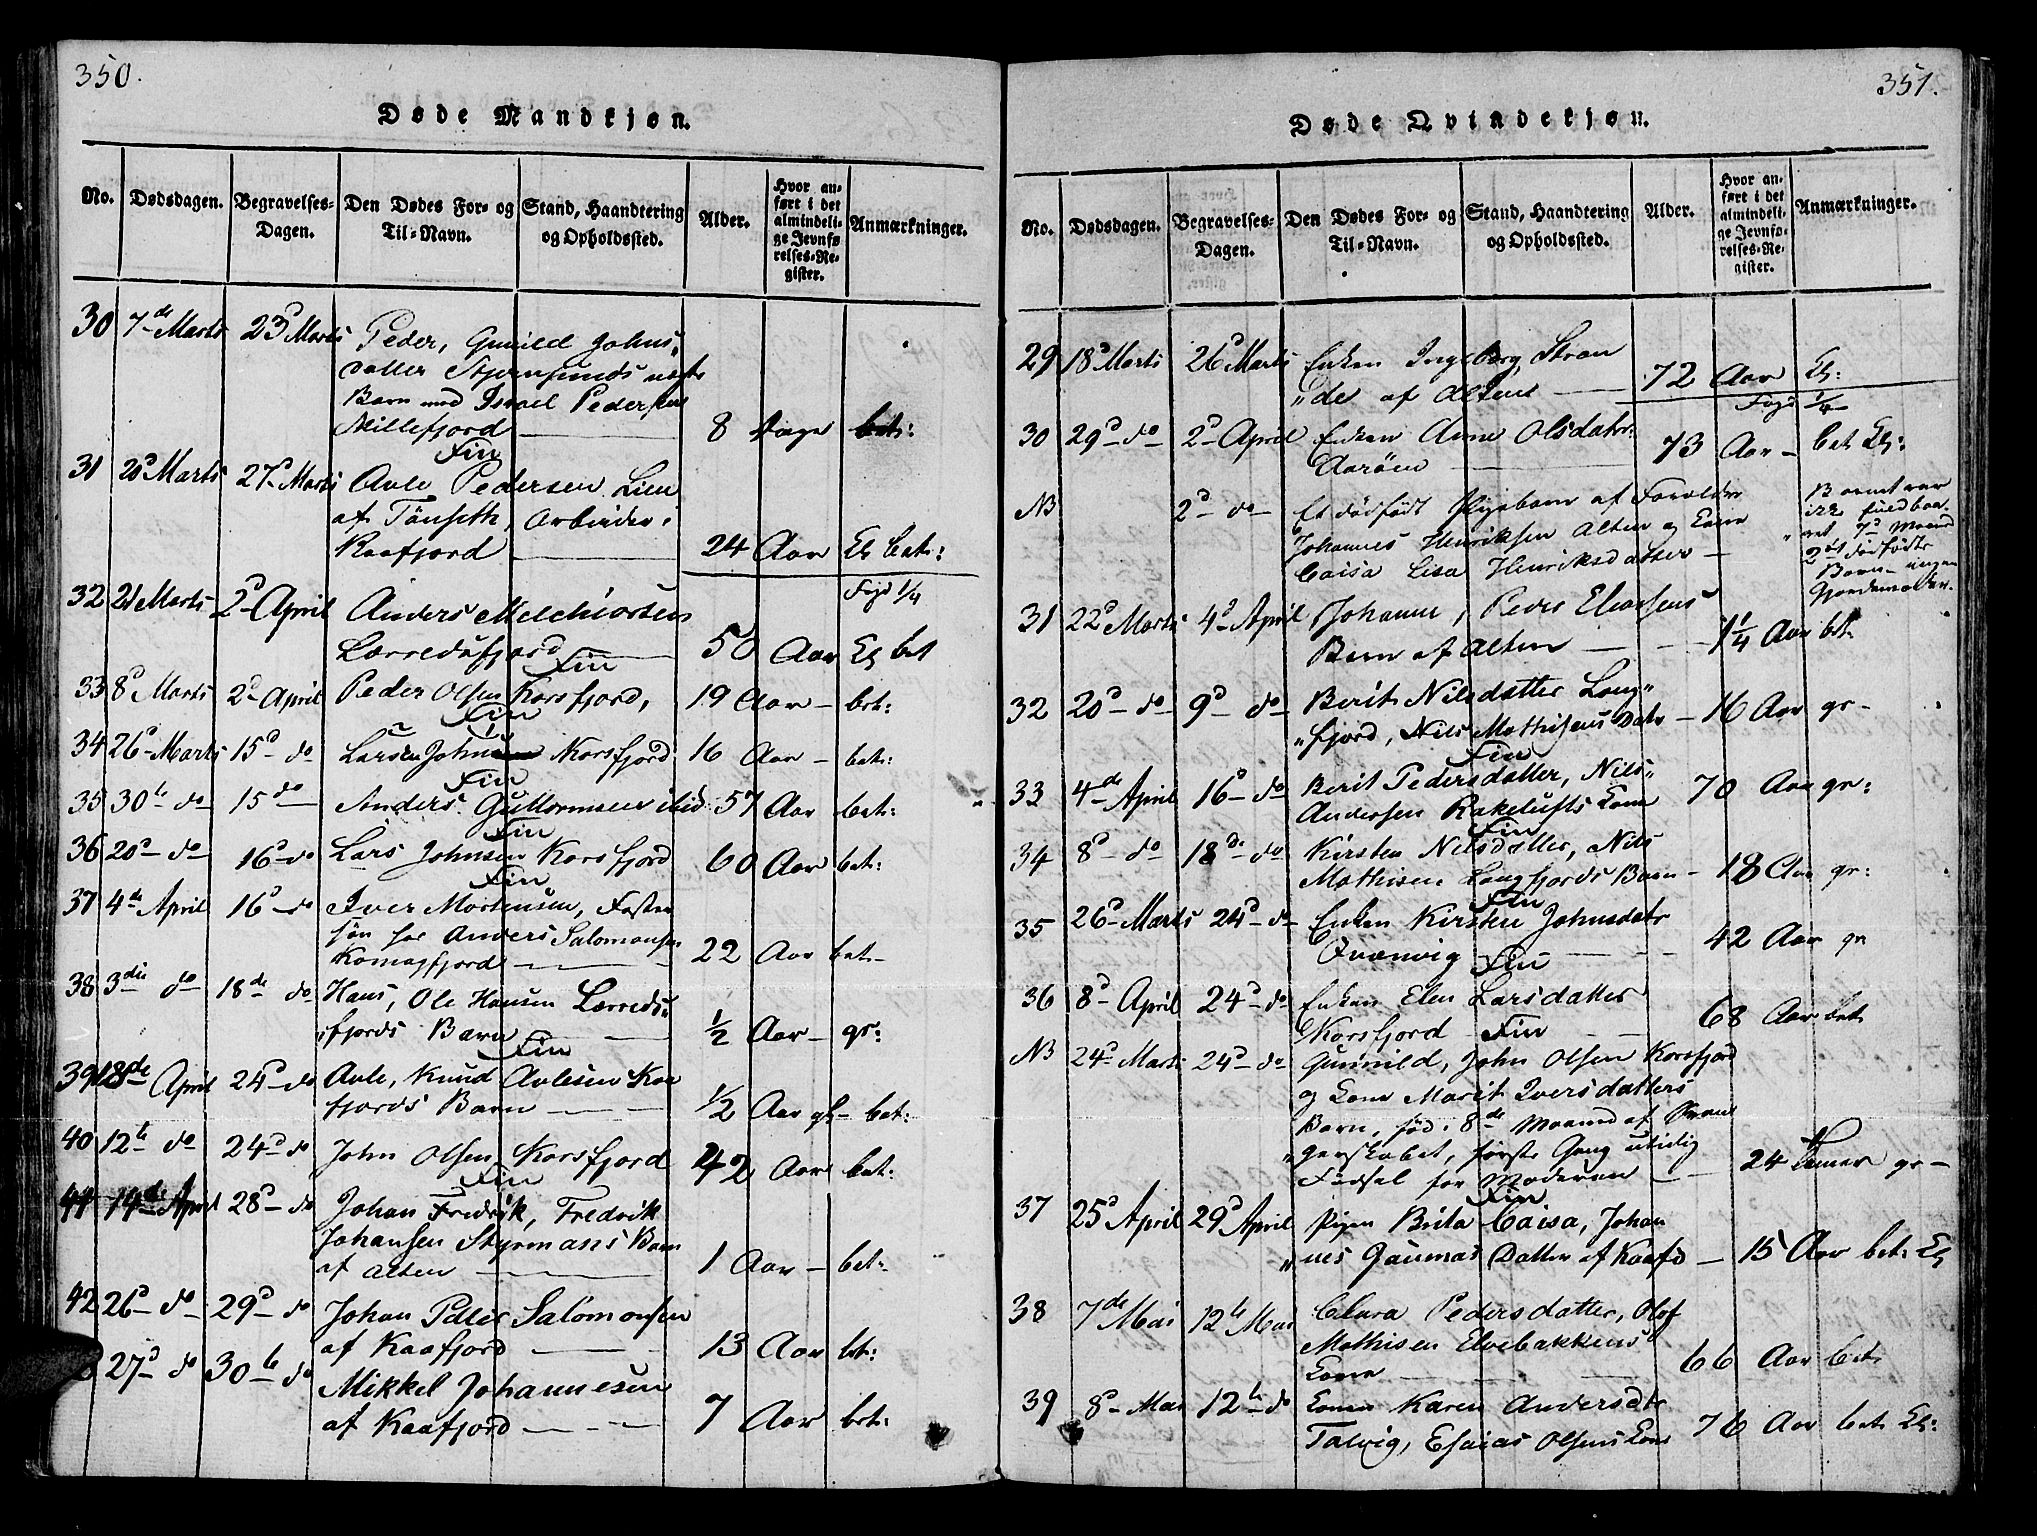 350.
Døde Mandkjøn.
No. Dødsdagen. Begravelses-Dagen. Den Dødes For- og Til-Navn. Stand, Haandtering og Opholdssted. Alder. Hvor anført i det almindelige Jevnførelses-Register. Anmærkninger.
30 7de Marts 23d Marts Peder, Gunild Johns
datter Stjernsunds uægte
Barn med Israel Pedersen
Nillefjord 8 Dage bet:
Fin
31 20d Marts 27d Marts Avle Pedersen Lien
af Tönseth, Arbeider i
Kaafjord 24 Aar El bet:
Fogd 1/4
32 21 Marts 2d April Anders Melchiorsen
Lerredsfjord 50 Aar El bet
Fin
33 8d Marts 2d April Peder Olsen Korsfjord, 19 Aar bet:
Fin
34 26d Marts 15d do Lars John Korsfjord 16 Aar bet:
Fin
35 30te do 15 do Anders Guttormsen ibid 57 Aar bet:
Fin
36 20d do 16d do Lars Johnsen Korsfjord 60 Aar bet:
Fin
37 4de April 16d do Iver Mortensen, Foster
søn hos Anders Salomonsen
Komagfjord 22 Aar bet
38 3die do 18de do Hans, Ole Hansen Lerreds
fjords Barn 1/2 Aar gr:
Fin
39 18de April 24d do Avle, Knud Avlesen Kaa
fjords Barn 1/2 Aar bet:
40 12te do 24d do John Olsen Korsfjord 42 Aar bet:
Fin
41 14de April 28d do Johan Fredrik, Fredrik
Johansen Styrmans Barn
af Alten 1 Aar bet:
42 26d do 29d do Johan Peter Salomonsen
af Kaafjord 13 Aar bet:
3 27d do 30te do Mikkel Johannesen
af Kaafjord 7 Aar bet:
351.
Døde Qvindekjøn.
No. Dødsdagen. Begravelses-Dagen. Den Dødes For- og Til-Navn. Stand, Haandtering og Opholdssted. Alder. Hvor anført i det almindelige Jevnførelses-Register. Anmærkninger.
29 18d Marts 26d Marts Enken Ingeborg Stran
de af Alten 72 Aar El:
Fogd 1/4
30 29d do 2d April Enken Anne Olsdatr:
Aarøen 73 Aar bet El:
NB 2d do Et dødfødt Pigebarn af Forældre
Johannes Henriksen Alten og Kone
Caisa Lisa Henriksdatter
Barnet var
ikke fuldbaa
ret 7d Maaned
2det dødfødte
Barn ingen
Gjordemoder.
31 22d Marts 4d April Johanne, Peder Eliasens
Barn af Alten 1 1/4 Aar bet
32 20d do 9d do Berit Nilsdatter Lang
fjord, Nils Mathisens Datr 16 Aar gr
Fin
33 4de April 16d do Berit Pedersdatter, Nils
Andersen Rakelufts Kone 70 Aar gr:
Fin
34 8d do 18de do Kirsten Nilsdatter, Nils
Mathisen Langfjords Barn 18 Aar gr:
Fin
35 26d Marts 24d do Enken Kirsten Johnsdatr
Qvænvig 42 Aar gr
Fin
36 8d April 24d do Enken Elen Larsdatter
Korsfjord 68 Aar bet
Fin
NB 24d Marts 24d do Gunnild, John Olsen Korsfjord
og Kone Marit Iversdatters
Barn, fød i 8de Maaned af Svan
gerskabet, første Gang utidig
Fødsel for Moderen 24 Timer gr
Fin
37 25d April 29d April Pigen Brita Caisa, Johan
nes Gaunas Datter af Kaafd 15 Aar bet: El
38 7de Mai 12te Mai Clara Pedersdatter, Olof
Mathisen Elvebakkens
Kone 66 Aar bet
39 8d Mai 12te do Konen Karen Andersdtr
Talvig, Esaias Olsens Kone 76 Aar bet El: